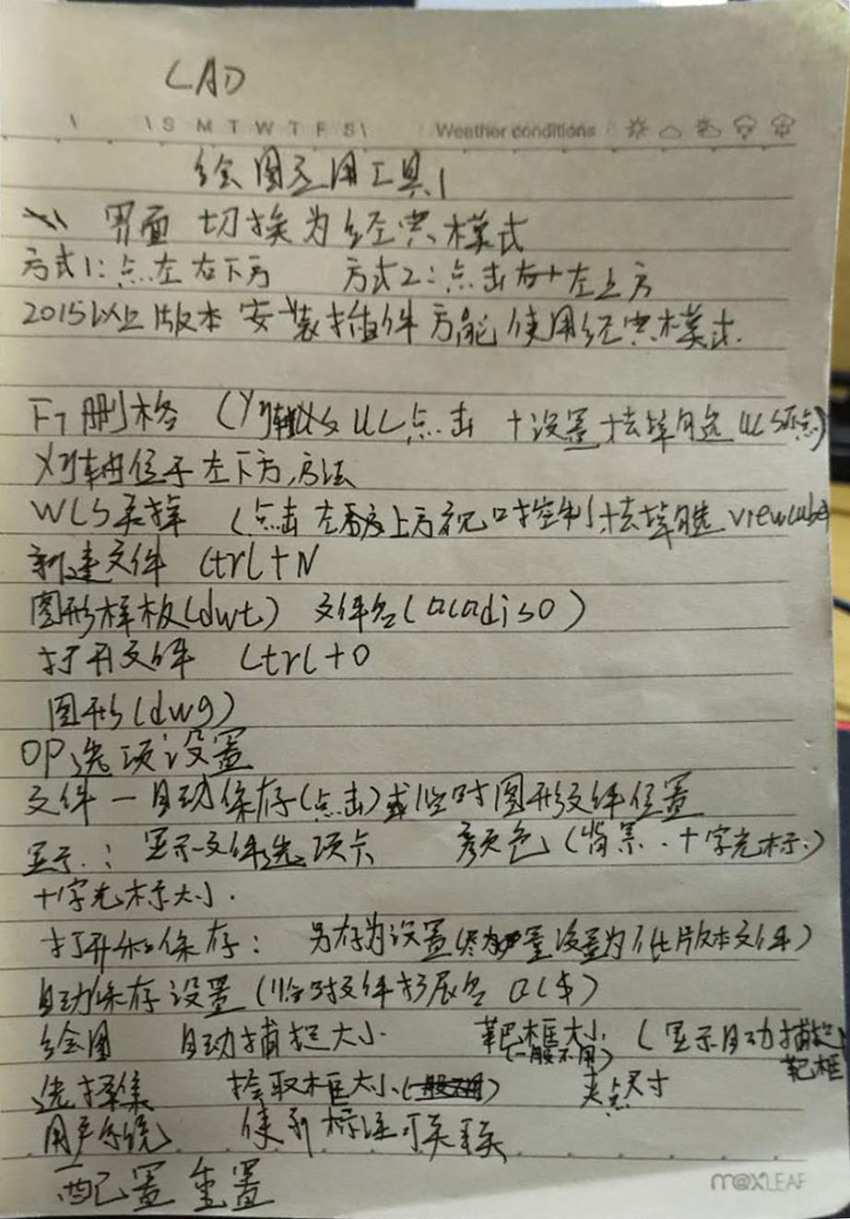 CAD
\ \S M T W T F S\ Weather conditions
绘图应用工具1
界面 切换为经典模式
方式1:点左右下方 方式2:点击右+左上方
2015以上版本 安装插件方能使用经典模式.
F7删格 (XY轴 UC点击 +设置+去掉勾选UCS原点)
XY轴由位于左下方,方法
WCS去掉 (点击左上方视口控制+去掉勾选viewcube
新建文件 Ctrl+N
图形样板(dwt) 文件名(acadiso)
打开文件 Ctrl+O
图形(dwg)
OP选项设置
文件—自动保存(点击)或临时图形文件位置
显示: 显示文件选项卡 颜色(背景.十字光标.)
十字光标大小.
打开和保存: 另存为设置(尽量设置为低版本文件)
自动保存设置(临时文件扩展名 ac$)
绘图 自动捕捉大小 靶框大小(一般不用) (显示自动捕捉靶框
选择集 拾取框大小(一般不用) 夹点尺寸
用户系统 使新标注可关联
配置 重置
m@XLEAF